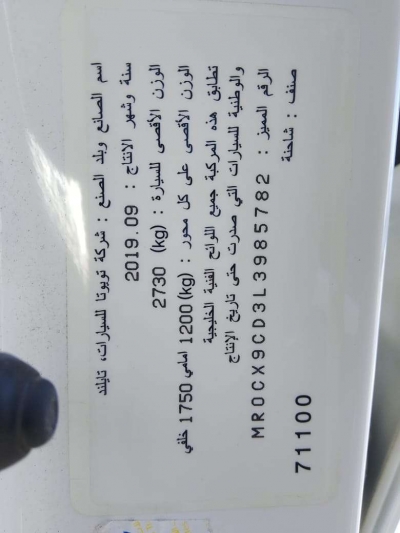 اسم الصانع وبلد الصنع : شركة تويوتا للسيارات، تايلند
سنة وشهر الانتاج : 2019.09
الوزن الأقصى للسيارة : (kg) 2730
الوزن الأقصى على كل محور : (kg)1200 امامي 1750 خلفي
تطابق هذه المركبة جميع اللوائح الفنية الخليجية
والوطنية للسيارات التي صدرت حتى تاريخ الإنتاج
الرقم المميز : MR0CX9CD3L3985782
صنف : شاحنة
71100